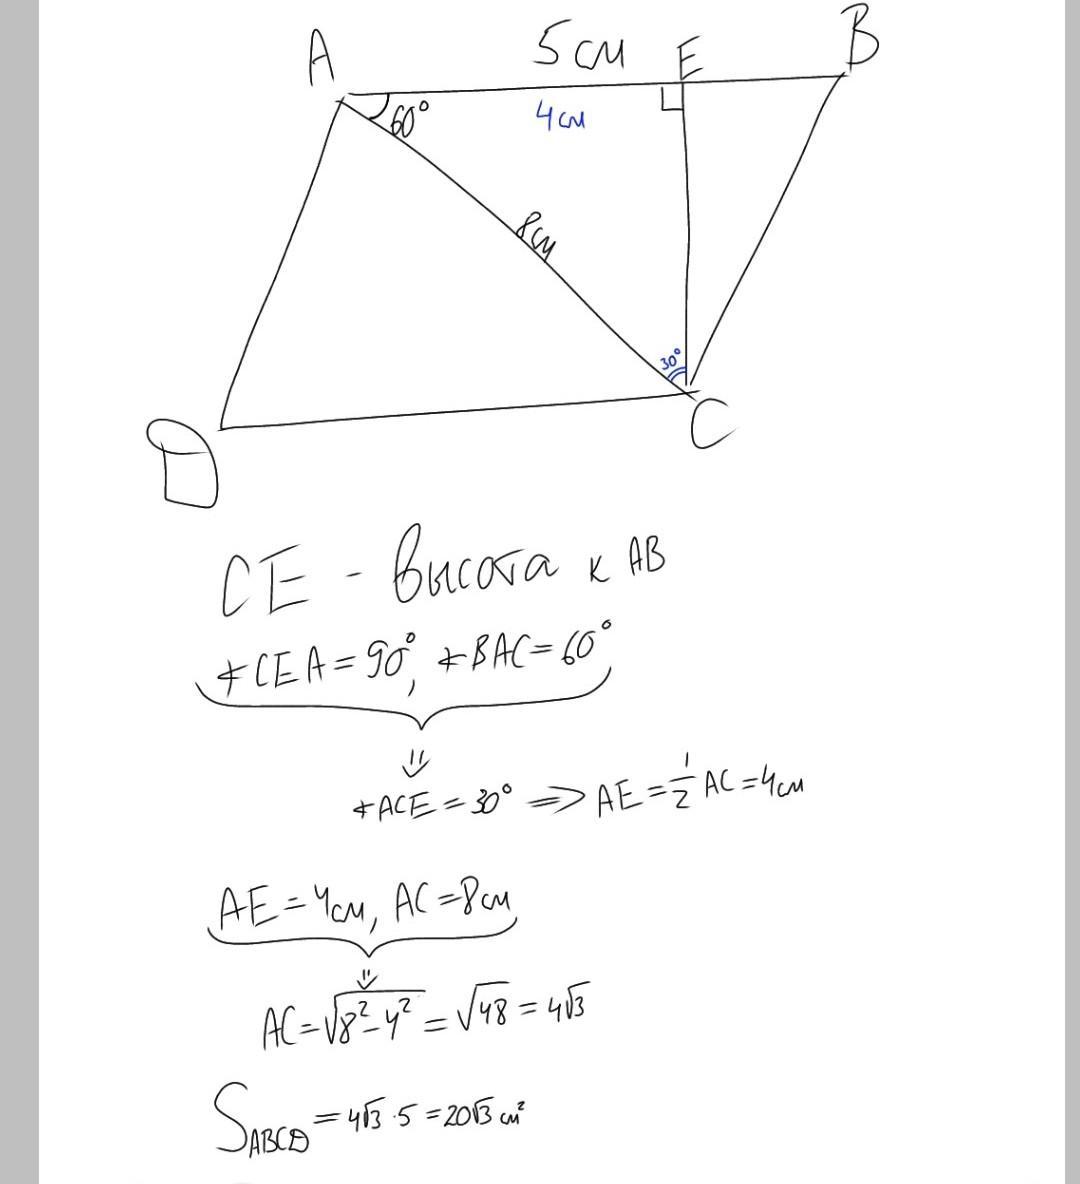 A 5 см E B
60° 4 см
8см
30°
D C
CE - высота к AB
∢CEA = 90°, ∢BAC = 60°
⇓
∢ACE = 30° ⟹ AE = 1/2 AC = 4см
AE = 4см, AC = 8см
⇓
AC = √8² - 4² = √48 = 4√3
S ABCD = 4√3 · 5 = 20√3 см²